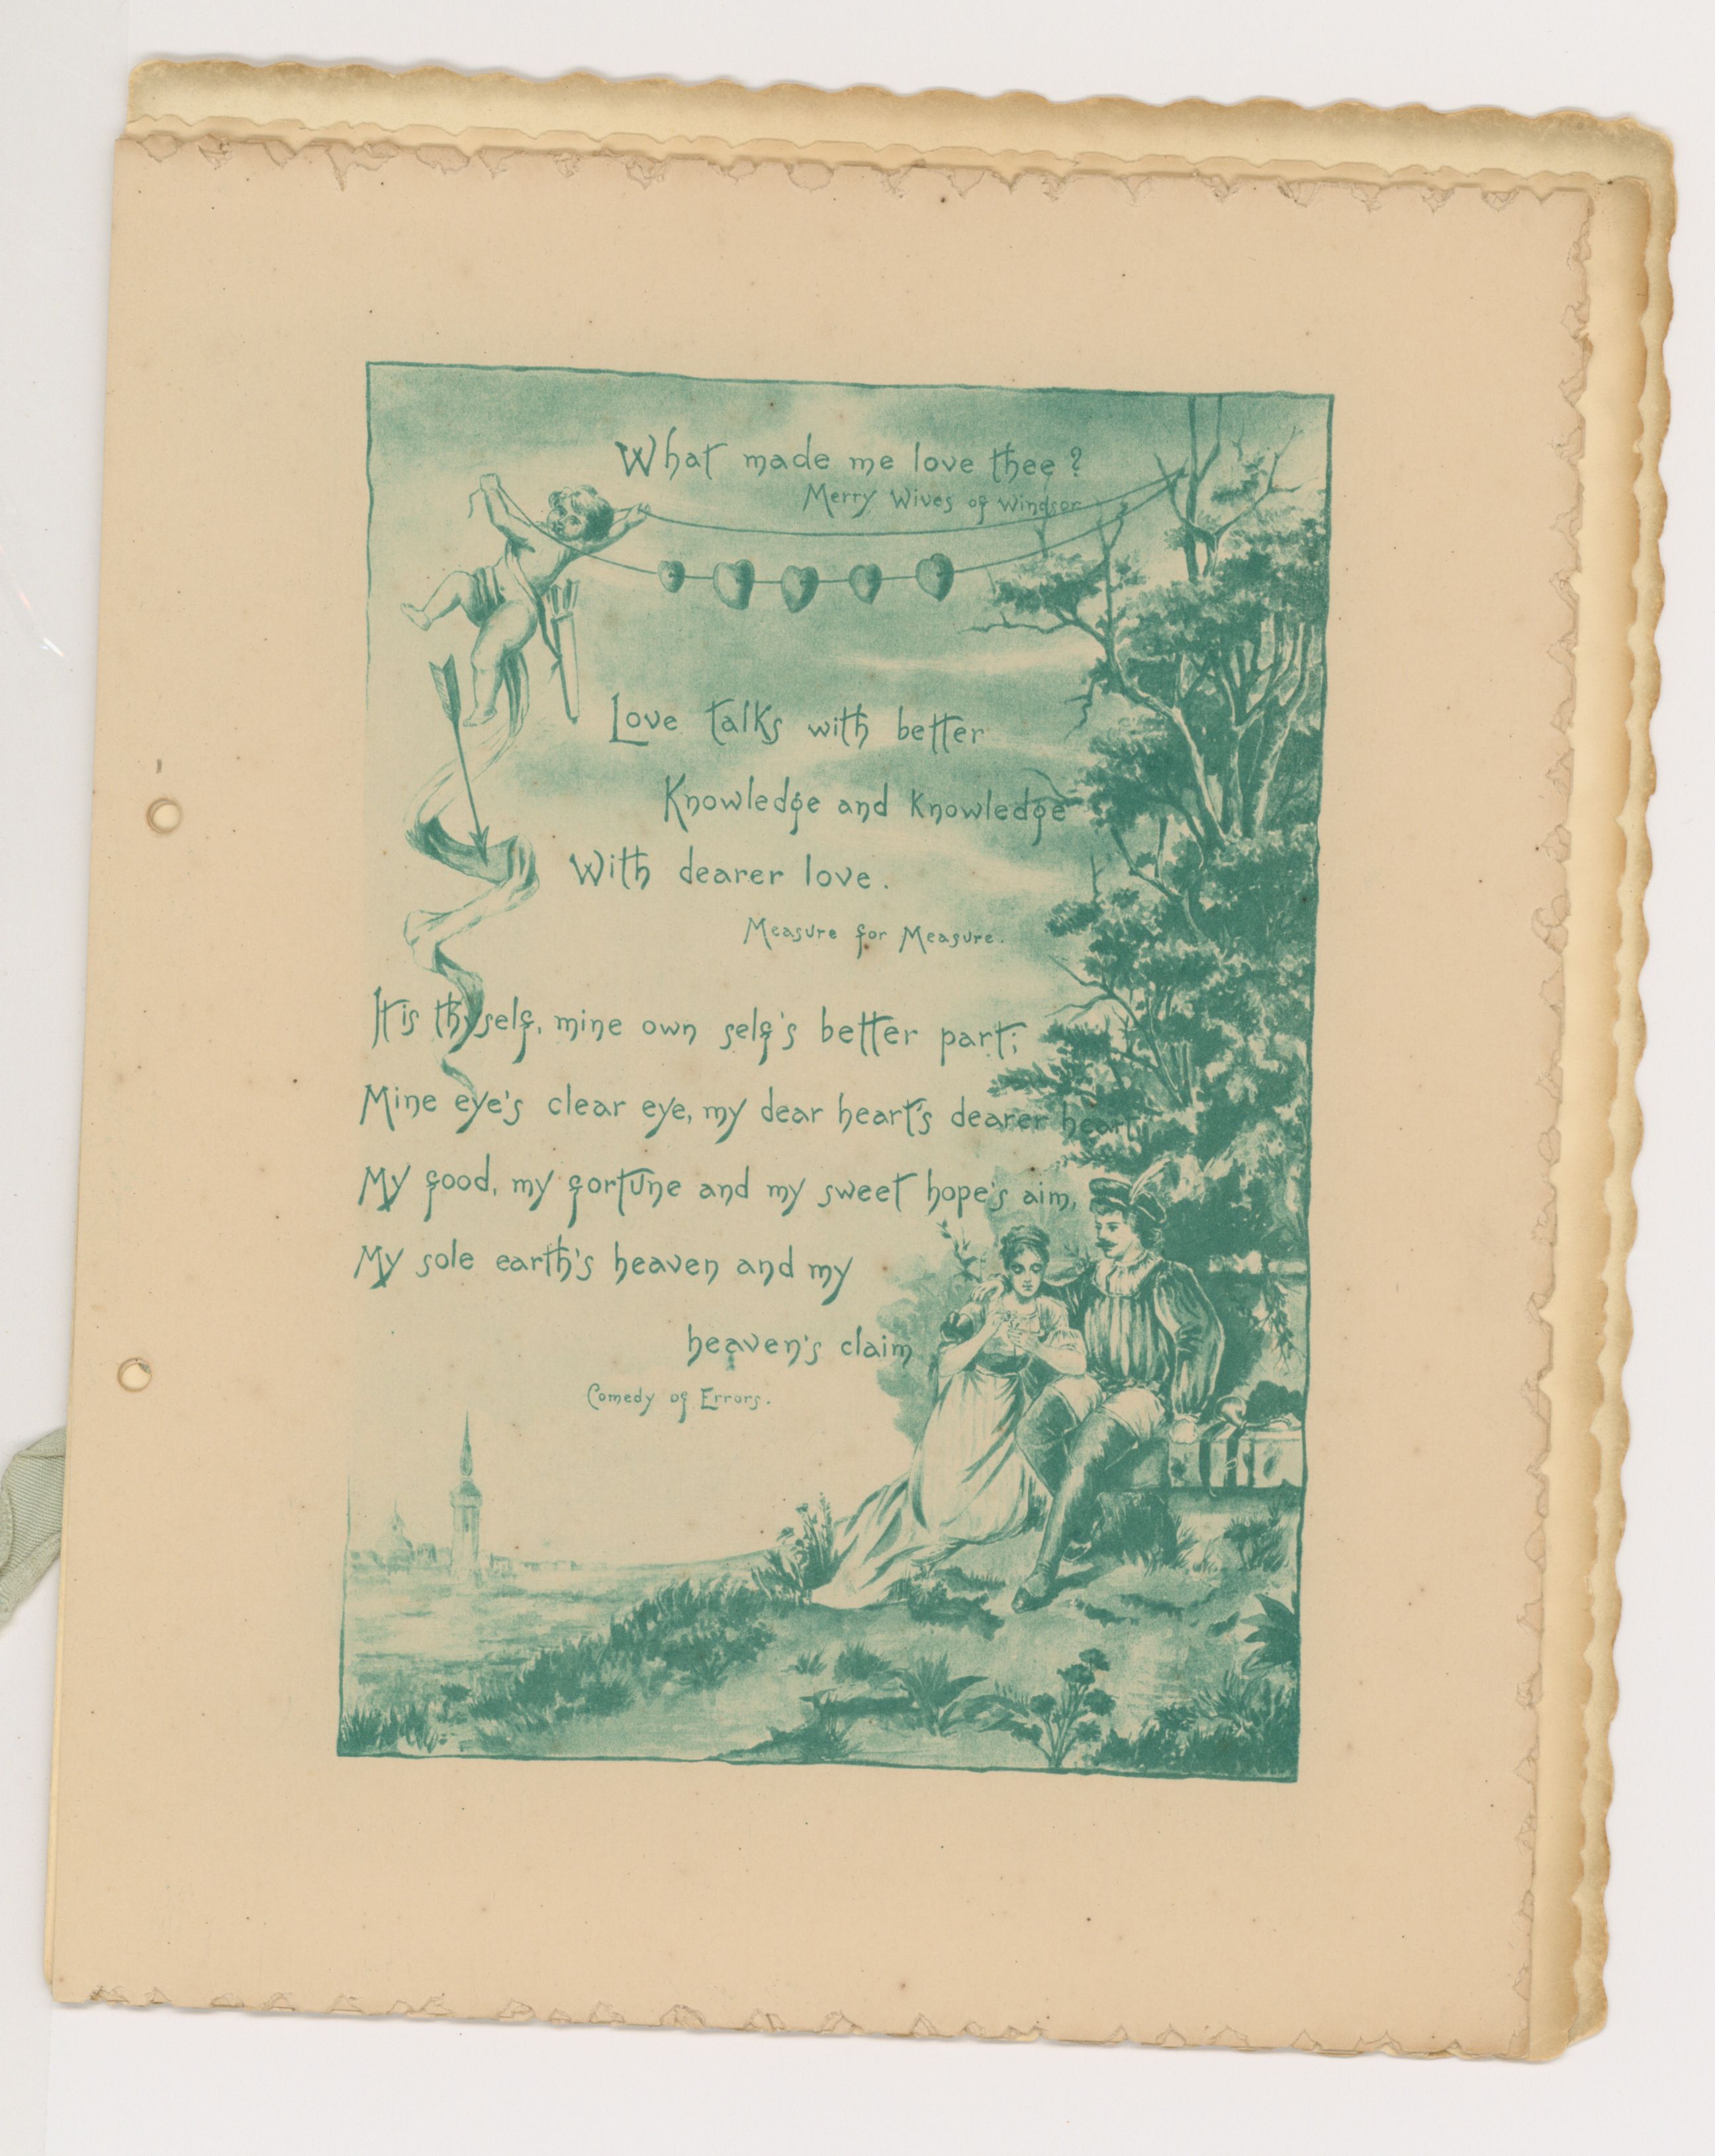 What made me love thee?
Merry Wives of Windsor
Love talks with better
Knowledge and knowledge
With dearer love.
Measure for Measure.
It is thyself, mine own self's better part;
Mine eye's clear eye, my dear heart's dearer heart,
My food, my fortune and my sweet hope's aim,
My sole earth's heaven and my
heaven's claim
Comedy of Errors.